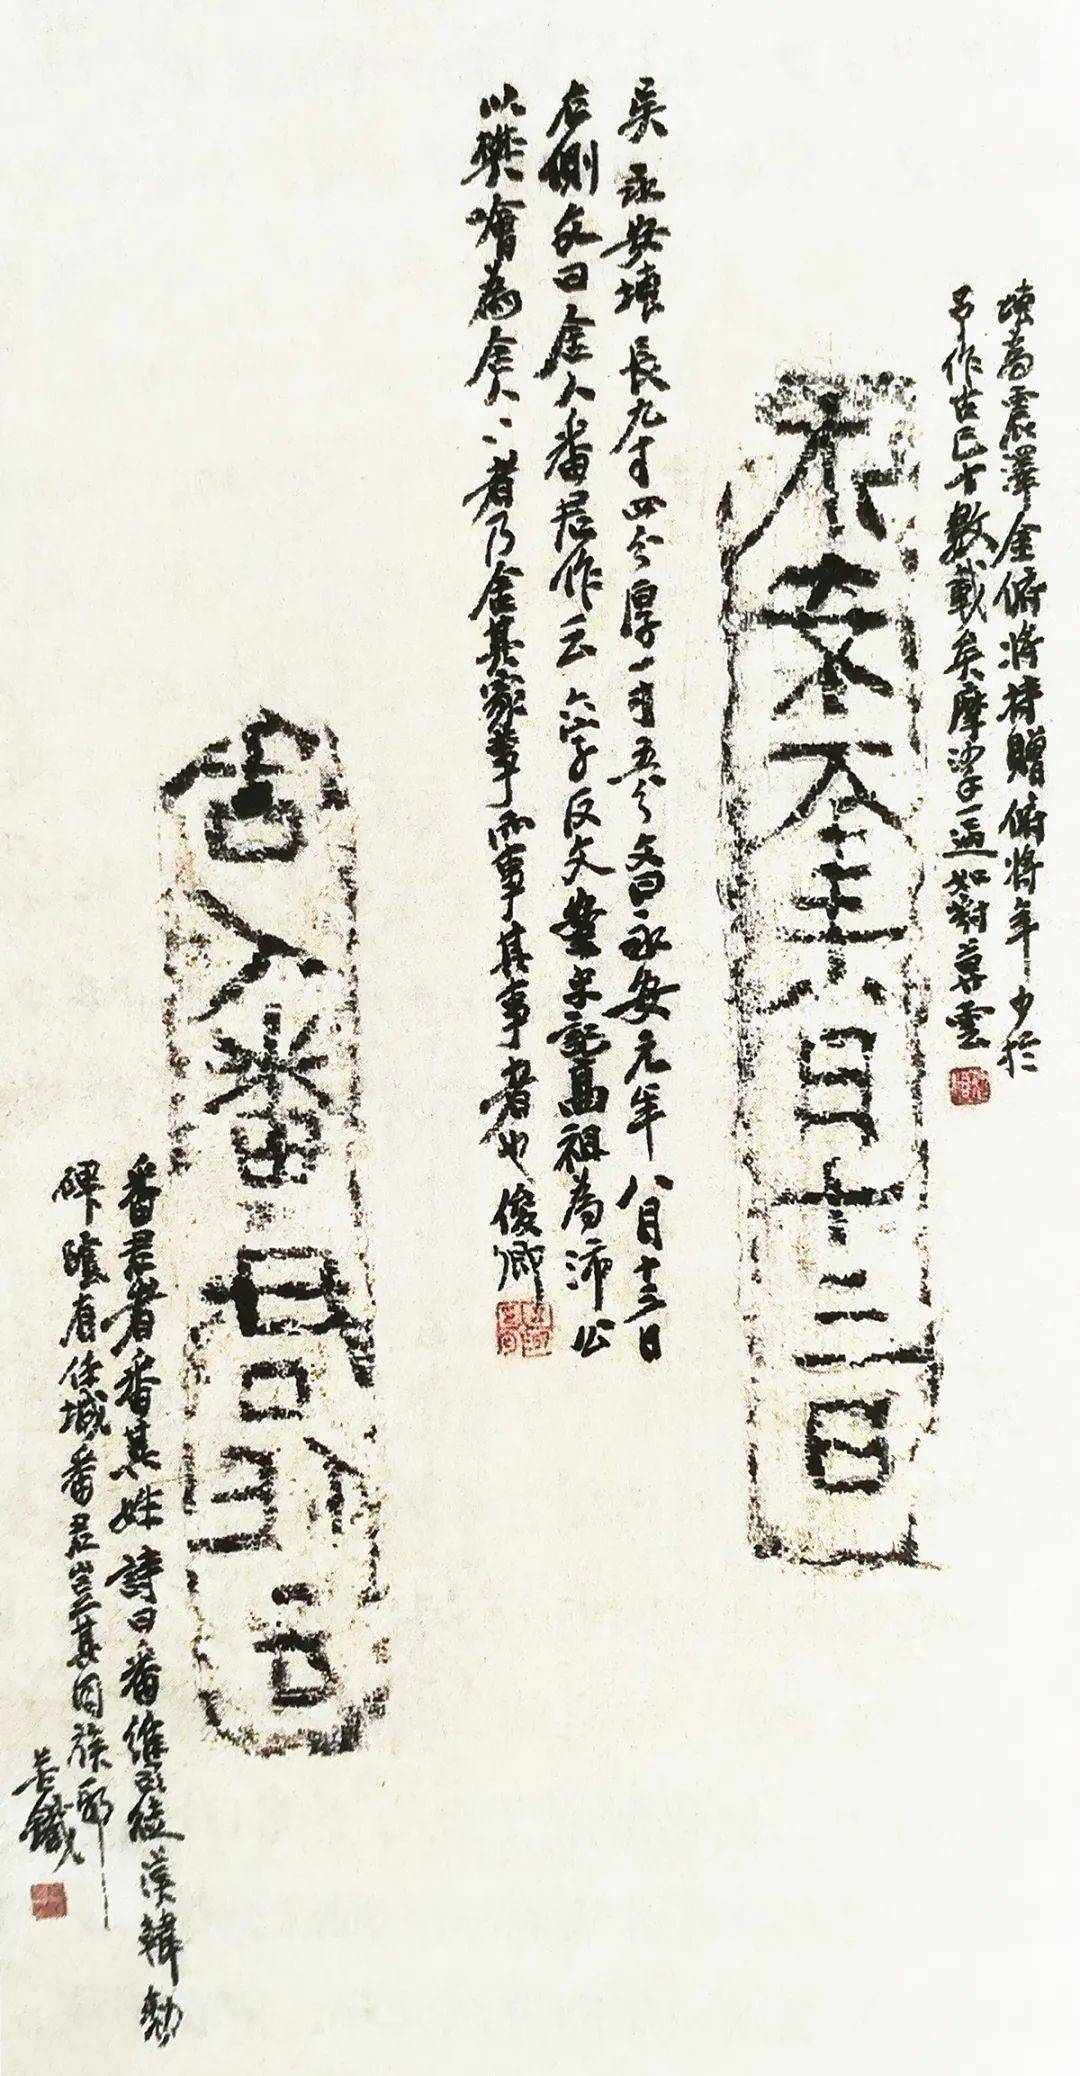 塼為震澤金俯將持贈俯將年少於
予作古已十數載矣摩挲一過如對暮雲
永安元年八月十三日
吳永安塼長九寸四分厚一寸五分文曰永安元年八月十三日
右側文曰舍人番君作云六字反文案史記高祖為沛公
以樊噲為舍人〻者乃舍其家事而事其事者也俊卿
舍人番君作云
番君者番其姓詩曰番維司徒漢韓勑
碑陰有徐城番君豈其同族耶
苦鐵